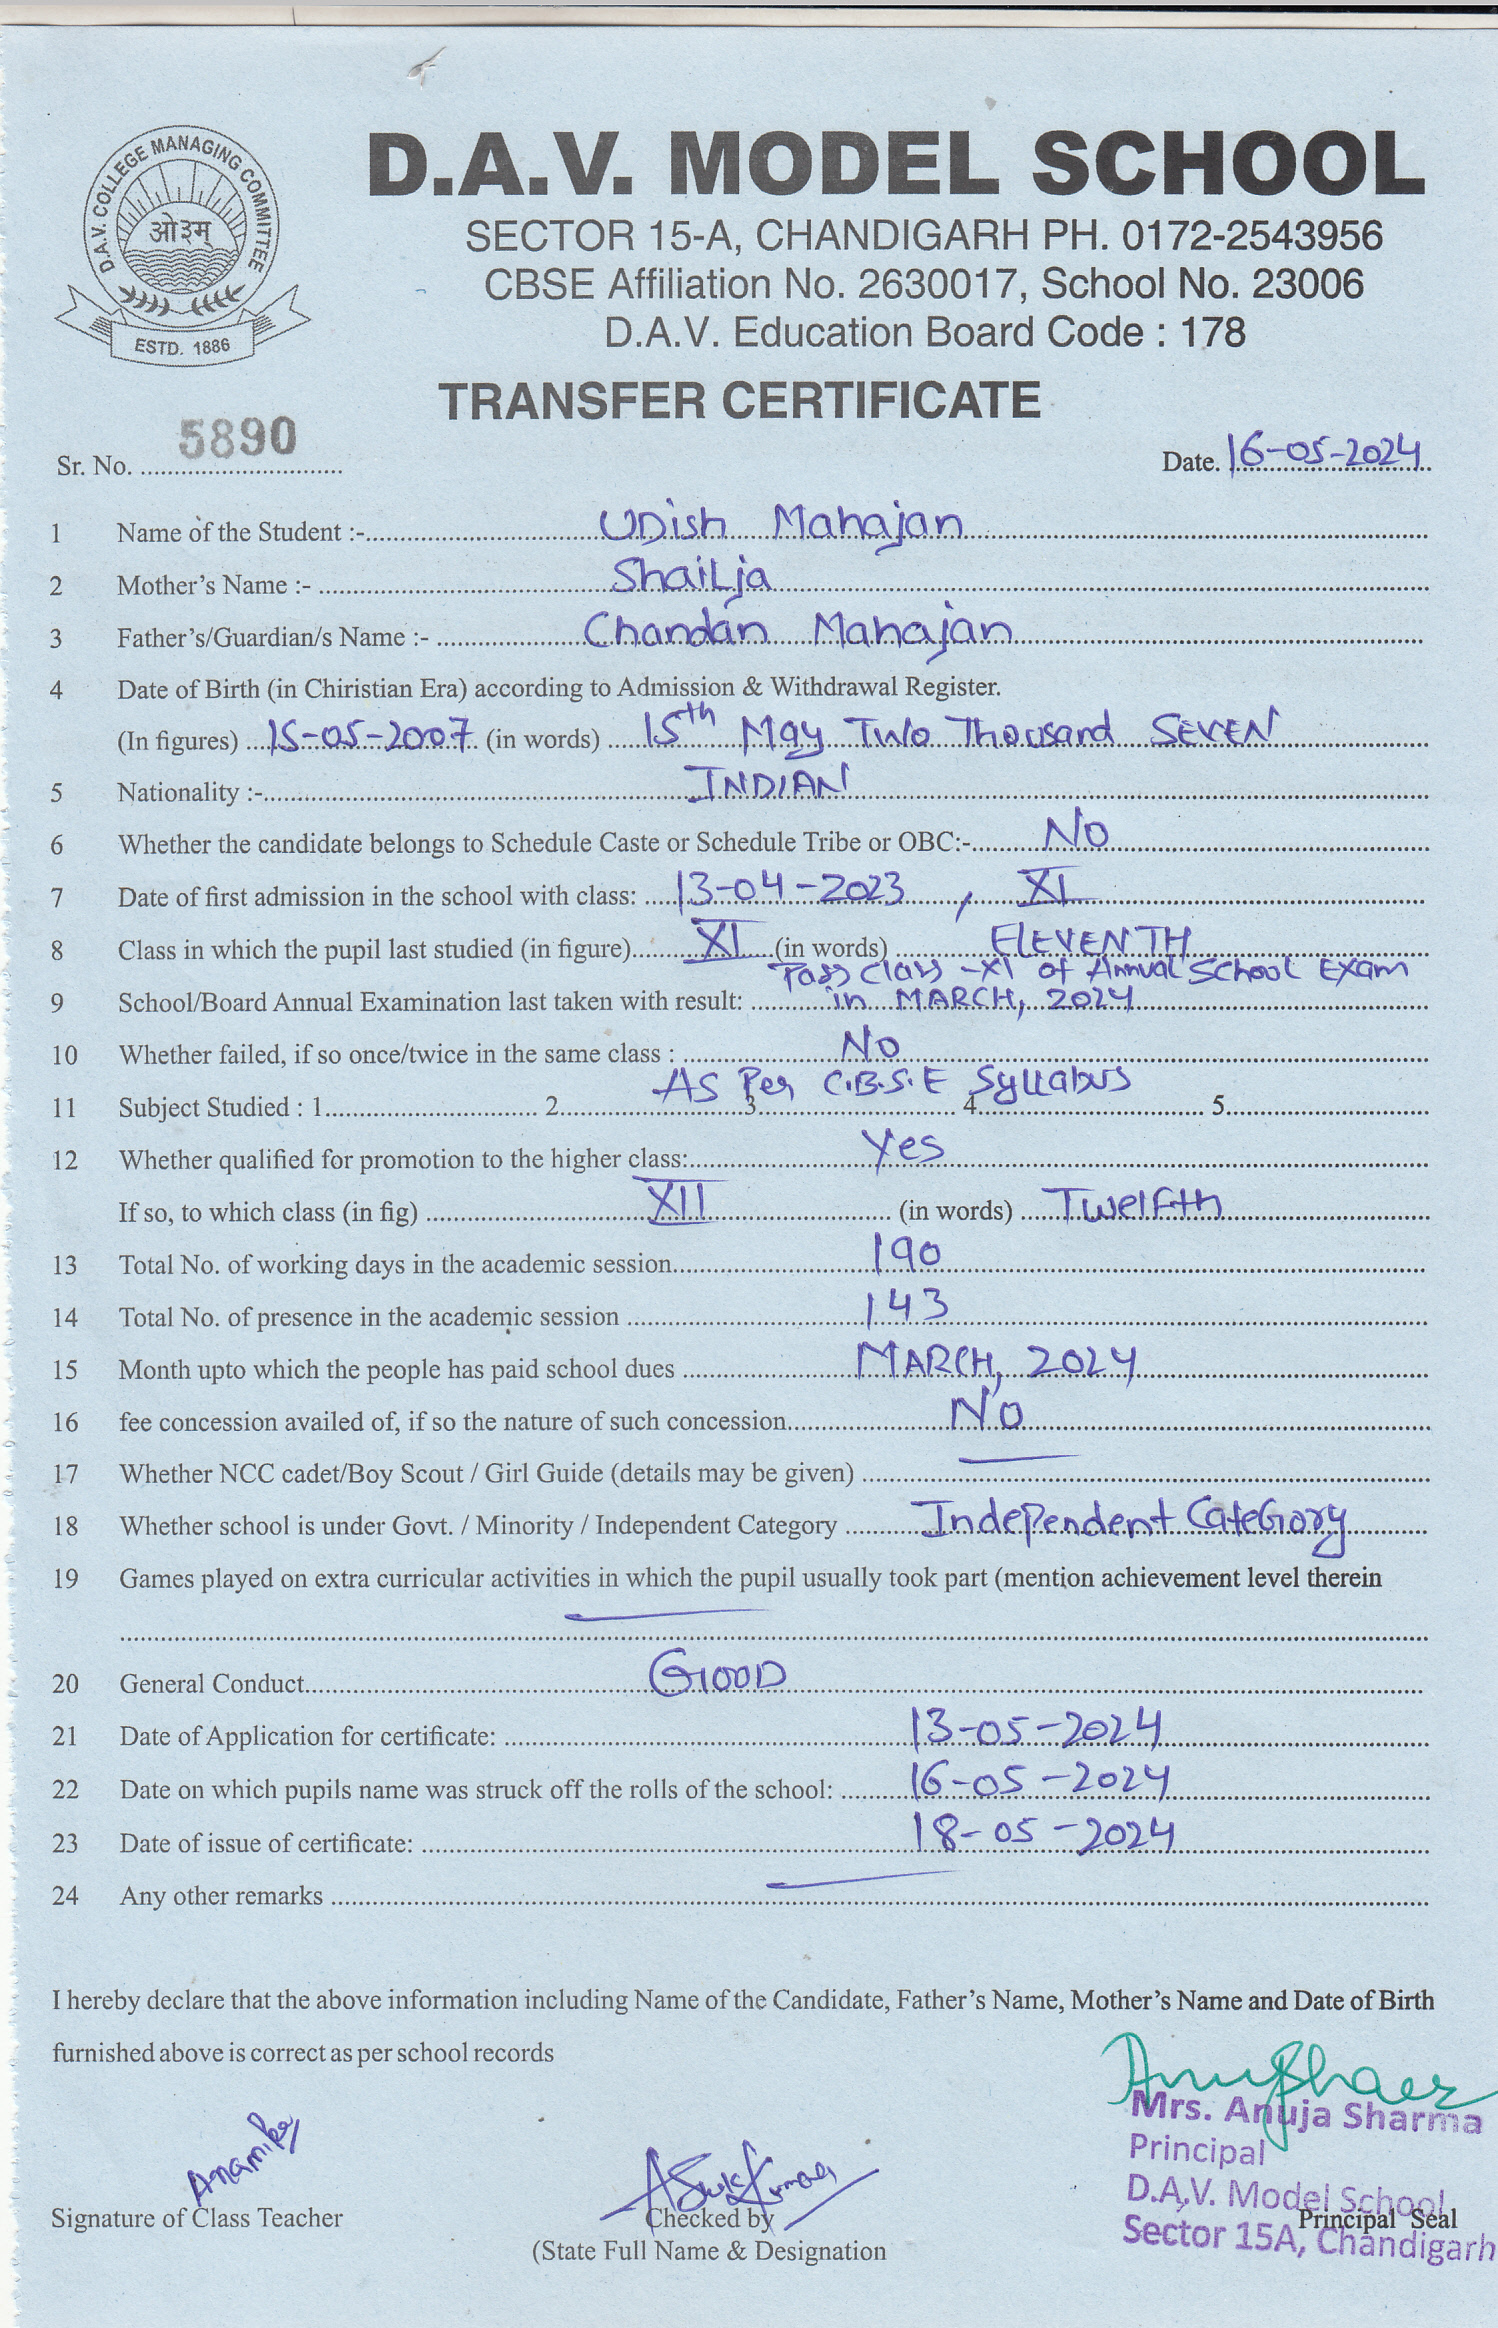 D.A.V. COLLEGE MANAGING COMMITTEE
ओ३म्
ESTD. 1886
D.A.V. MODEL SCHOOL
SECTOR 15-A, CHANDIGARH PH. 0172-2543956
CBSE Affiliation No. 2630017, School No. 23006
D.A.V. Education Board Code : 178
TRANSFER CERTIFICATE
Sr. No. 5890 Date. 16-05-2024
1 Name of the Student :- UDish Mahajan
2 Mother's Name :- ShaiLja
3 Father's/Guardian/s Name :- Chandan Mahajan
4 Date of Birth (in Chiristian Era) according to Admission & Withdrawal Register.
(In figures) 15-05-2007 (in words) 15th May Two Thousand SEVEN
5 Nationality :- INDIAN
6 Whether the candidate belongs to Schedule Caste or Schedule Tribe or OBC:- No
7 Date of first admission in the school with class: 13-04-2023, XI
8 Class in which the pupil last studied (in figure) XI (in words) ELEVENTH
Pass Class -XI of Annual School Exam
9 School/Board Annual Examination last taken with result: in MARCH, 2024
10 Whether failed, if so once/twice in the same class : No
As Per C.B.S.E Syllabus
11 Subject Studied : 1 2 3 4 5
12 Whether qualified for promotion to the higher class: Yes
If so, to which class (in fig) XII (in words) Twelfth
13 Total No. of working days in the academic session 190
14 Total No. of presence in the academic session 143
15 Month upto which the people has paid school dues MARCH, 2024
16 fee concession availed of, if so the nature of such concession No
17 Whether NCC cadet/Boy Scout / Girl Guide (details may be given)
18 Whether school is under Govt. / Minority / Independent Category Independent CateGory
19 Games played on extra curricular activities in which the pupil usually took part (mention achievement level therein
20 General Conduct GOOD
21 Date of Application for certificate: 13-05-2024
22 Date on which pupils name was struck off the rolls of the school: 16-05-2024
23 Date of issue of certificate: 18-05-2024
24 Any other remarks
I hereby declare that the above information including Name of the Candidate, Father's Name, Mother's Name and Date of Birth
furnished above is correct as per school records
Mrs. Anuja Sharma
Principal
D.A.V. Model School
Sector 15A, Chandigarh
Anamika
Signature of Class Teacher Checked by Principal Seal
(State Full Name & Designation